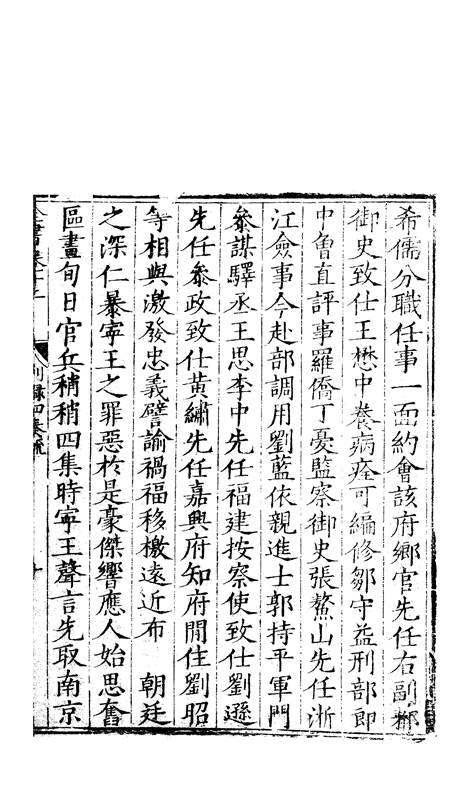 希儒分職任事一面約會該府鄉官先任右副都
御史致仕王懋中養病痊可編修鄒守益刑部郎
中魯直評事羅僑丁憂監察御史張鰲山先任浙
江僉事今赴部調用劉藍依親進士郭持平軍門
叅謀驛丞王思李中先任福建按察使致仕劉遜
先任叅政致仕黃繡先任嘉興府知府閒住劉昭
等相與激發忠義譬諭禍福移檄遠近布　朝廷
之深仁暴寧王之罪惡於是豪傑響應人始思奮
區畫旬日官兵稍稍四集時寧王聲言先取南京